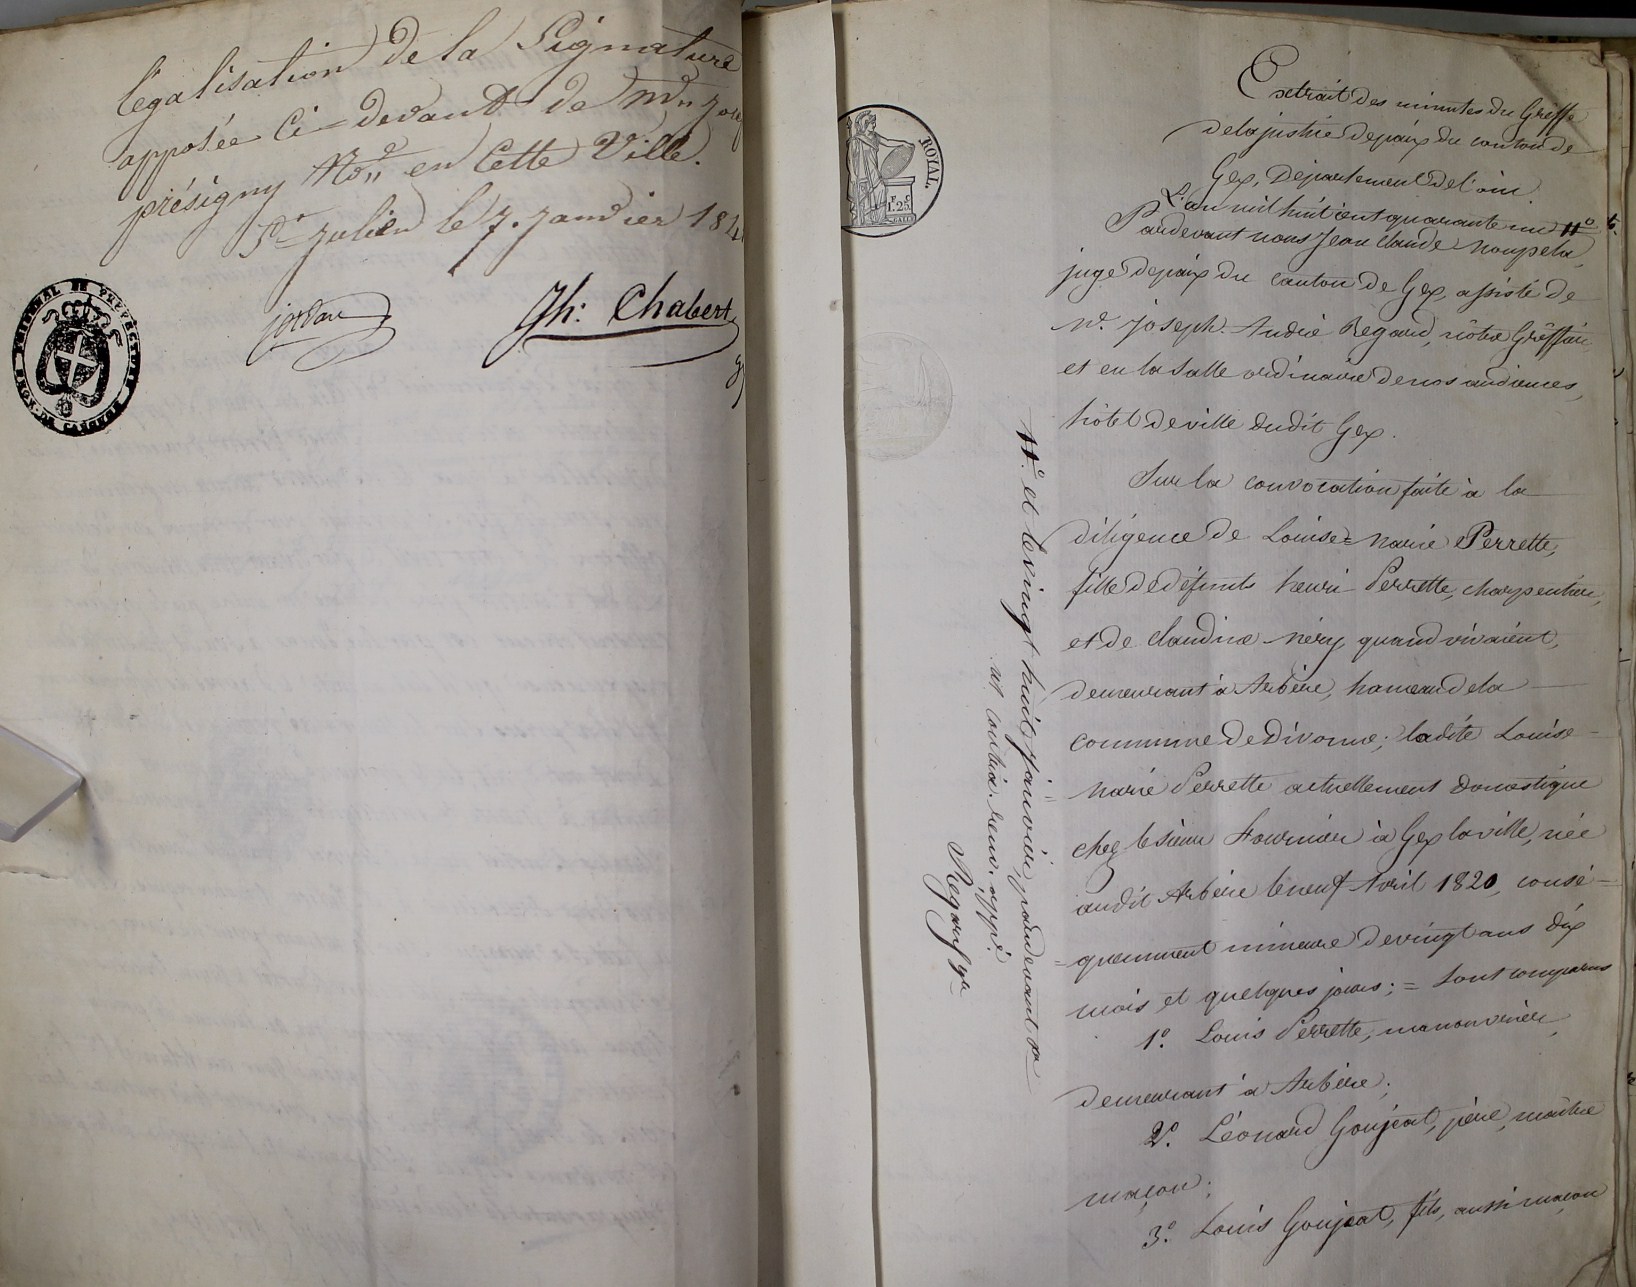 légalisation de la Signature
apposée Ci=devant de
présigny en Cette Ville.
St Julien le 7. Janvier 184
jordan
Jh: Chabert
ROYAL.
1.25
Extrait des minutes du Greffe
de la justice de paix du canton de
Gex, Département de l'ain.
L'an mil huit cent quarante un
Pardevant nous Jean Claude
juge de paix du canton de Gex, assisté de
Mr. Joseph. André Regard, nôtre Greffier
et en la salle ordinaire de nos audiences,
hôtel de ville dudit Gex.
Sur la convocation faite à la
diligence de Louise= Marie Perrette,
fille de défunts henri Perrette, charpentier,
et de Claudine Néry, quand vivaient,
demeurant à Arbère, hameau de la
commune de Divonne; ladite Louise
Marie Perrette actuellement domestique
chez le sieur Fournier à Gex la ville, née
audit Arbère le neuf Avril 1820, consé=
=quemment mineure de vingt ans dix
mois et quelques jours; = Sont comparus
1º. Louis Perrette, manouvrier,
demeurant à Arbère;
2º. Léonard Goujeat, père, maître
maçon;
3º. Louis Goujeat, fils, aussi maçon
et le vingt huit janvier, pardevant
Regard gr